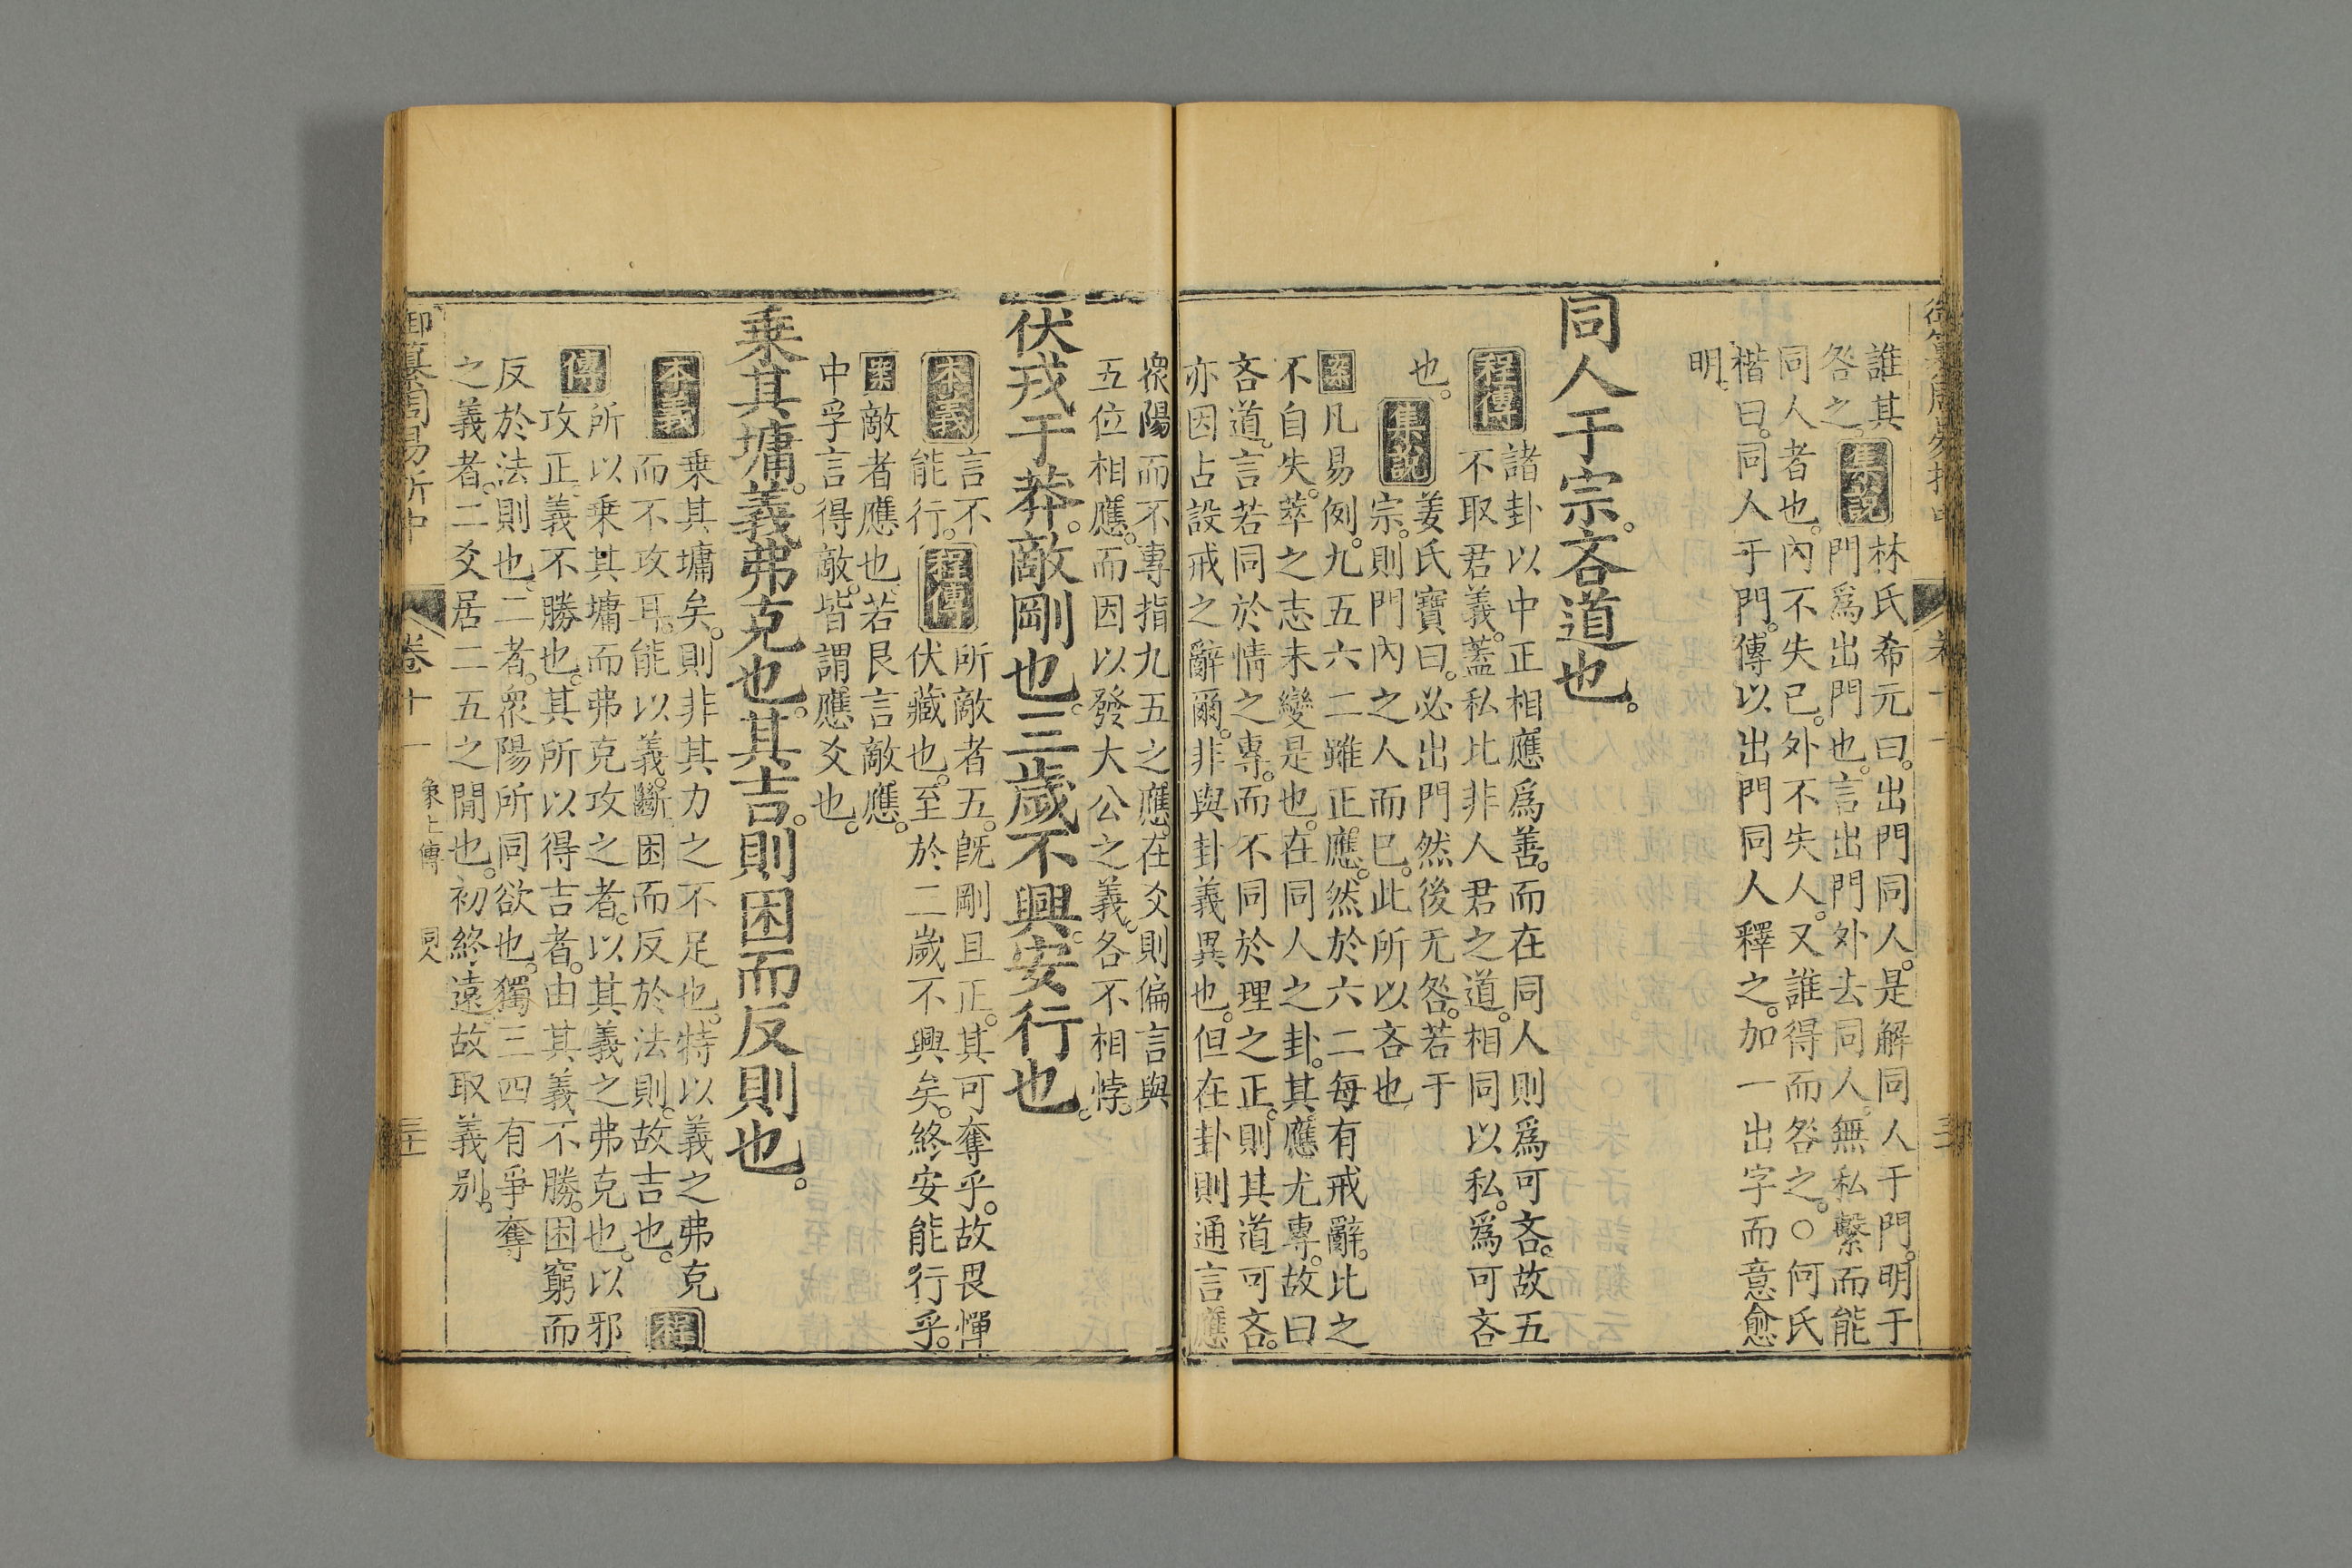 誰其
咎之。
集說
林氏希元曰。出門同人。是解同人于門。明于
門爲出門也。言出門外去同人。無私繫而能
同人者也。內不失已。外不失人。又誰得而咎之。○何氏
楷曰。同人于門。傳以出門同人釋之。加一出字而意愈
明。
同人于宗。吝道也。
程傳
諸卦以中正相應爲善。而在同人則爲可吝。故五
不取君義。蓋私比非人君之道。相同以私。爲可吝
也。
集說
姜氏寶曰。必出門然後无咎。若于
宗。則門內之人而已。此所以吝也
案凡易例。九五六二雖正應。然於六二每有戒辭。比之
不自失。萃之志未變是也。在同人之卦。其應尤專。故曰
吝道。言若同於情之專。而不同於理之正。則其道可吝。
亦因占設戒之辭爾。非與卦義異也。但在卦則通言應
衆陽而不專指九五之應。在爻則偏言與
五位相應。而因以發大公之義。各不相悖。
伏戎于莽。敵剛也。三歲不興。安行也。
本義
言不
能行。
程傳
所敵者五。旣剛且正。其可奪乎。故畏憚
伏藏也。至於二歲不興矣。終安能行乎。
案敵者應也。若艮言敵應。
中孚言得敵。皆謂應爻也。
乗其墉。義弗克也。其吉。則困而反則也。
本義
乗其墉矣。則非其力之不足也。特以義之弗克
而不攻耳。能以義。斷困而反於法則。故吉也。
程
傳
所以乗其墉而弗克攻之者。以其義之弗克也。以邪
攻正。義不勝也。其所以得吉者。由其義不勝。困窮而
反於法則也。二者。衆陽所同欲也。獨三四有爭奪
之義者。二爻居二五之間也。初終遠。故取義別。
御纂周易折中
卷十一
象上傳
同人